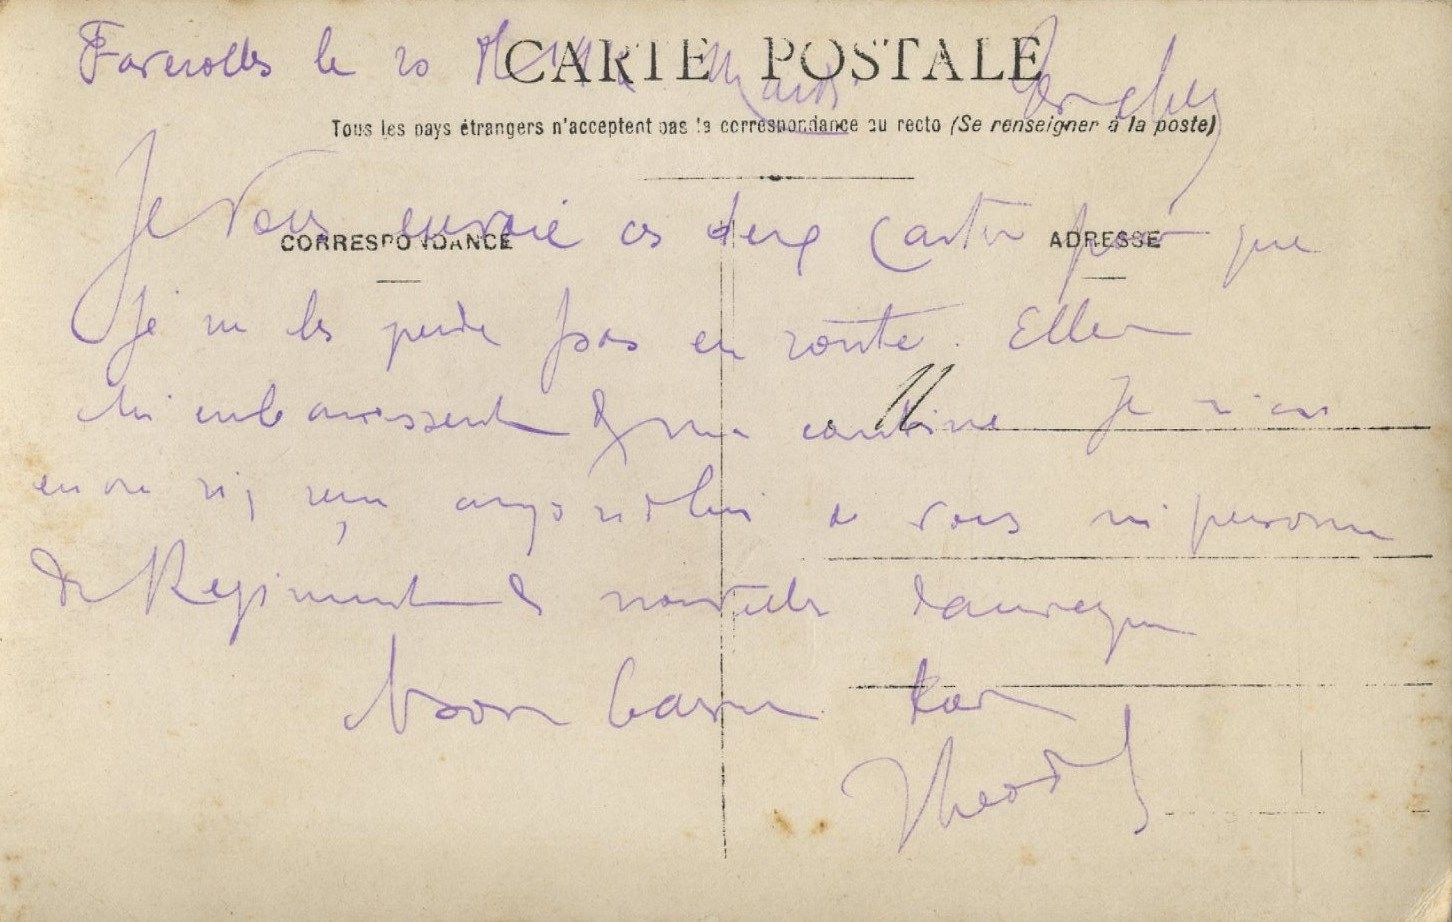 Faverolles le 20
CARTE POSTALE
Tous les pays étrangers n'acceptent pas la correspondance au recto (Se renseigner à la poste)
CORRESPONDANCE
ADRESSE
Je vous envoie ces deux cartes pour que
je ne les perde pas en route. Elles
embarrassent ma cantine Je n'ai
encore rien reçu aujourdhui de vous ni personne
Régiment nouvelle
Bon